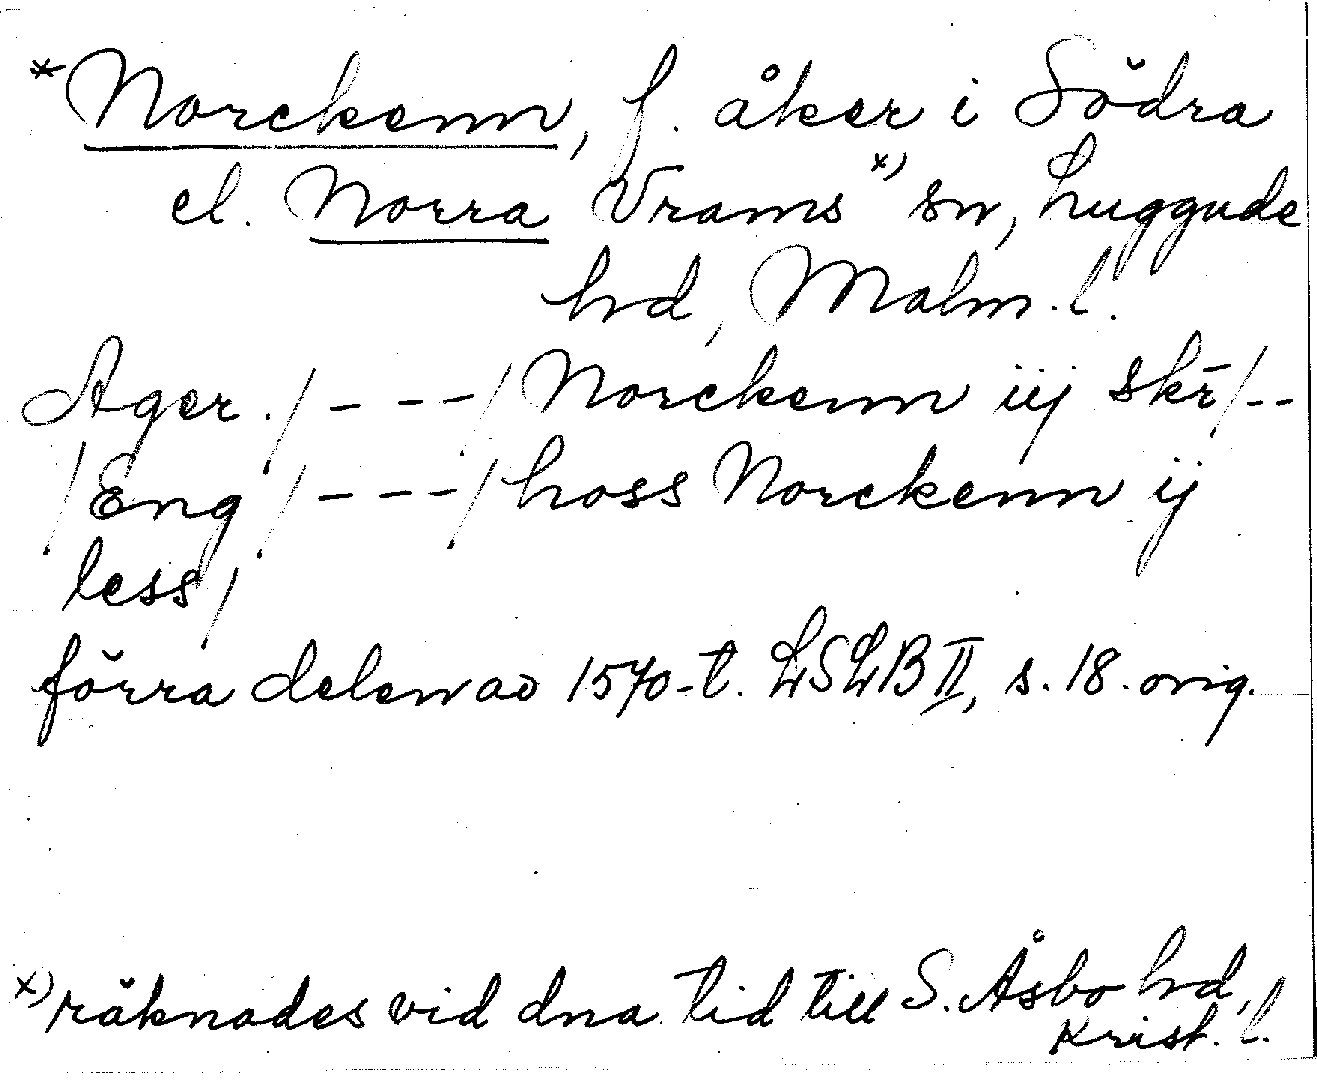 *Norckenn, f. åker i Södra
el. Norra Vrams x) sn, Luggude
hd, Malm. l.
Ager ./ - - - / Norckenn iij skr̄ / - -
/ Eng / - - - / hoss Norckenn ij
less /
förra delen av 1570-t. LSLB II, s. 18. orig.
x) räknades vid dna tid till S. Åsbo hd,
Krist. l.